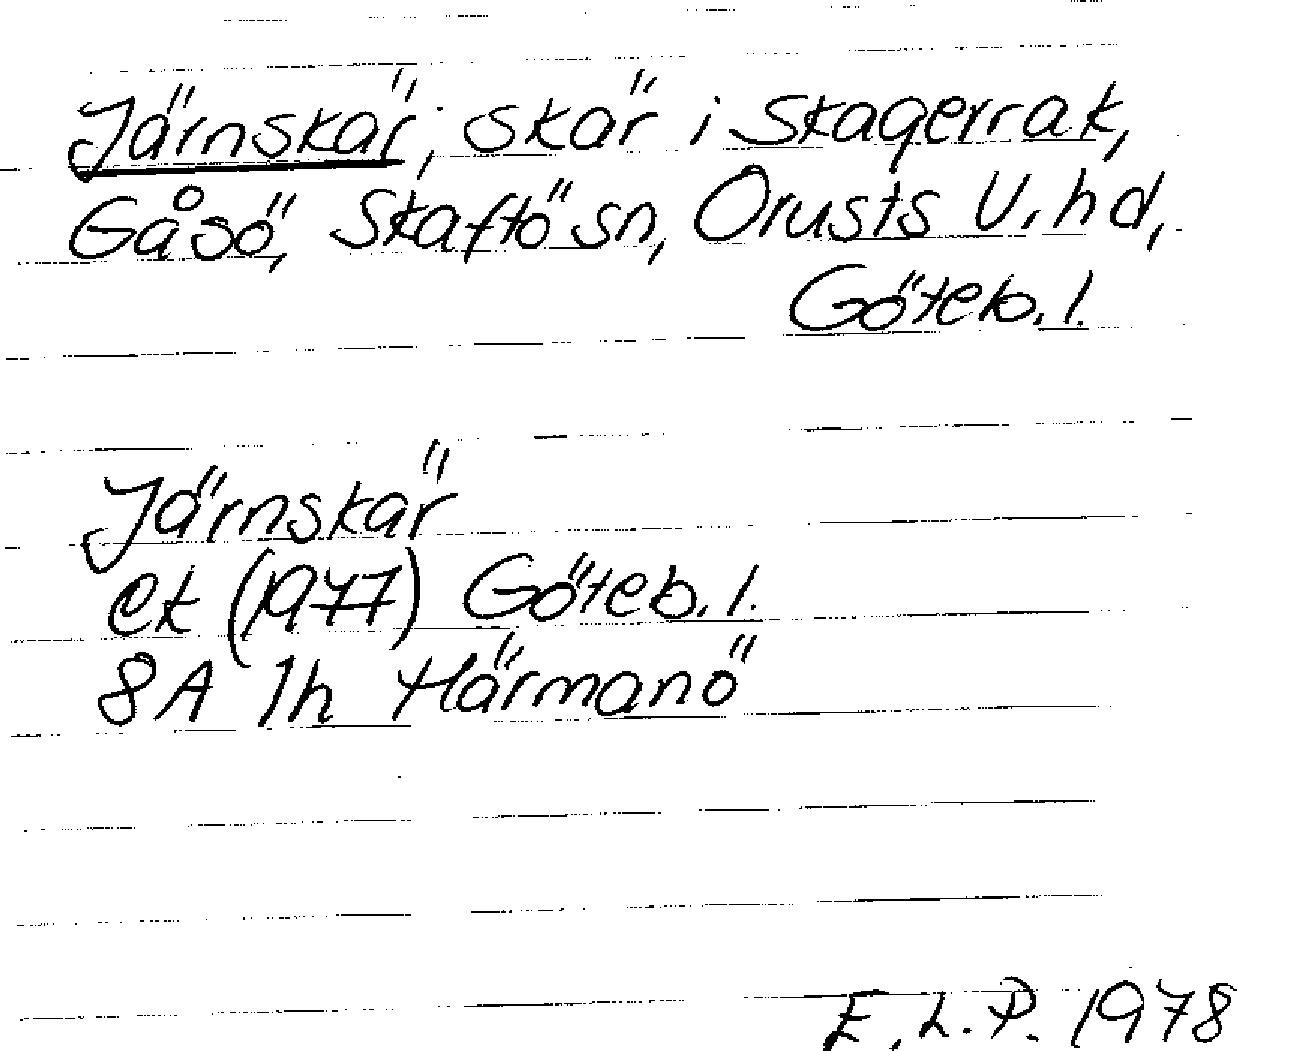 Järnskär; skär i Skagerrak,
Gåsö, Skaftö sn, Orusts V. hd,
Göteb. l.
Järnskär
ek (1977) Göteb. l.
8A 1h Härmanö
E. L. P. 1978